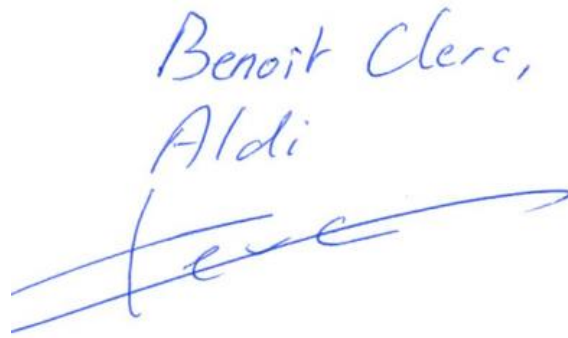 Benoit Clerc,
Aldi